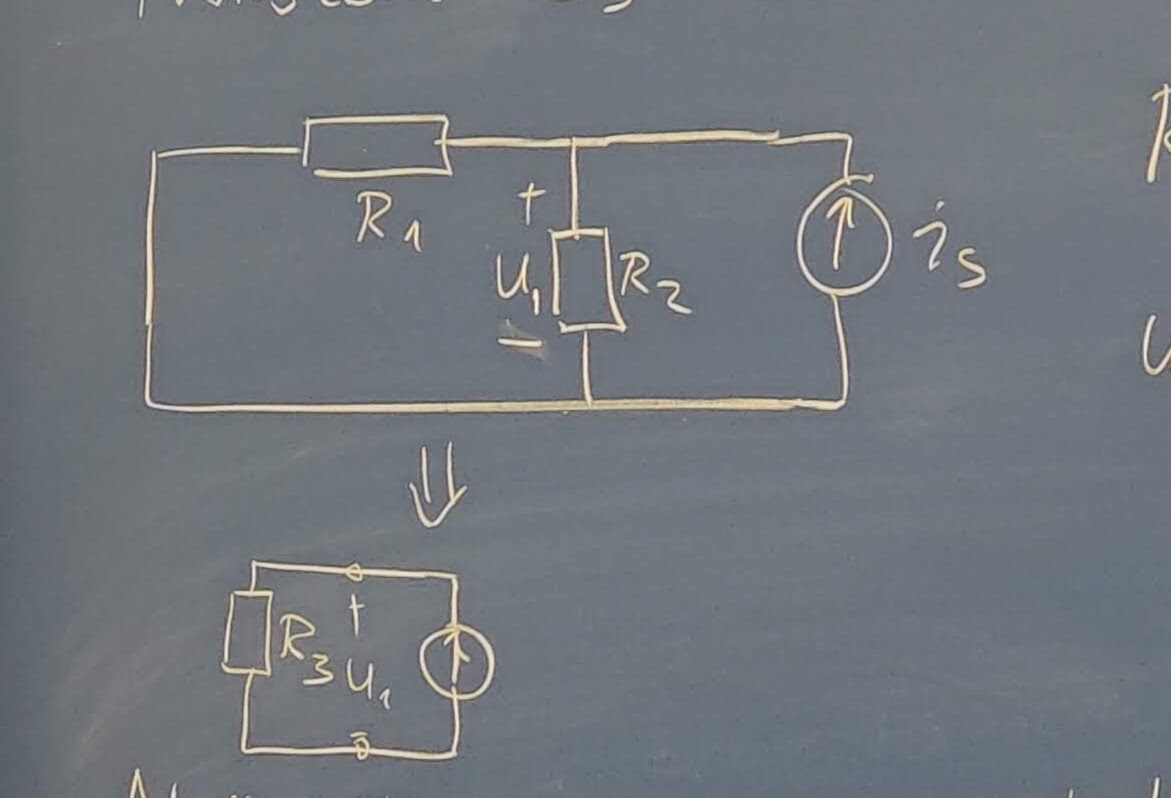 R1
+
U1
−
R2
is
R3
+
U1
−